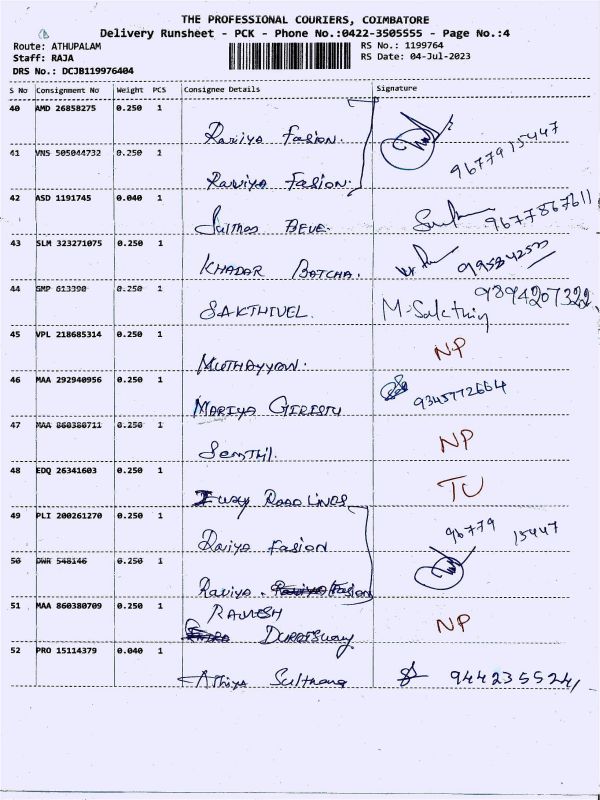 THE PROFESSIONAL COURIERS, COIMBATORE
Delivery Runsheet - PCK - Phone No.:0422-3505555 - Page No.:4
Route: ATHUPALAM
RS No.: 1199764
Staff: RAJA
RS Date: 04-Jul-2023
DRS No.: DCJB119976404
S No Consignment No Weight PCS Consignee Details Signature
40 AMD 26858275 0.250 1
Raviya Fasion.
41 VNS 505044732 0.250 1 9677915447
Raviya Fasion.
42 ASD 1191745 0.040 1 9677867611
Sulthas BEVE.
43 SLM 323271075 0.250 1
KHADAR BATCHA.
44 GMP 613390 0.250 1 9894207322
SAKTHIVEL. M. Sakthiy
45 VPL 218685314 0.250 1 NP
MUTHAYYAN.
46 MAA 292940956 0.250 1 9345772664
MARIYA GIRISH
47 MAA 860380711 0.250 1 NP
Senthil.
48 EDQ 26341603 0.250 1 TU
I way ROAD LINES
49 PLI 200261270 0.250 1 96779 15447
Raviya Fasion
50 DWR 548146 0.250 1
Raviya. Fasion
51 MAA 860380709 0.250 1 RAMESH NP
DURAISWAMY
52 PRO 15114379 0.040 1
Athiya Sulthana 9442355241